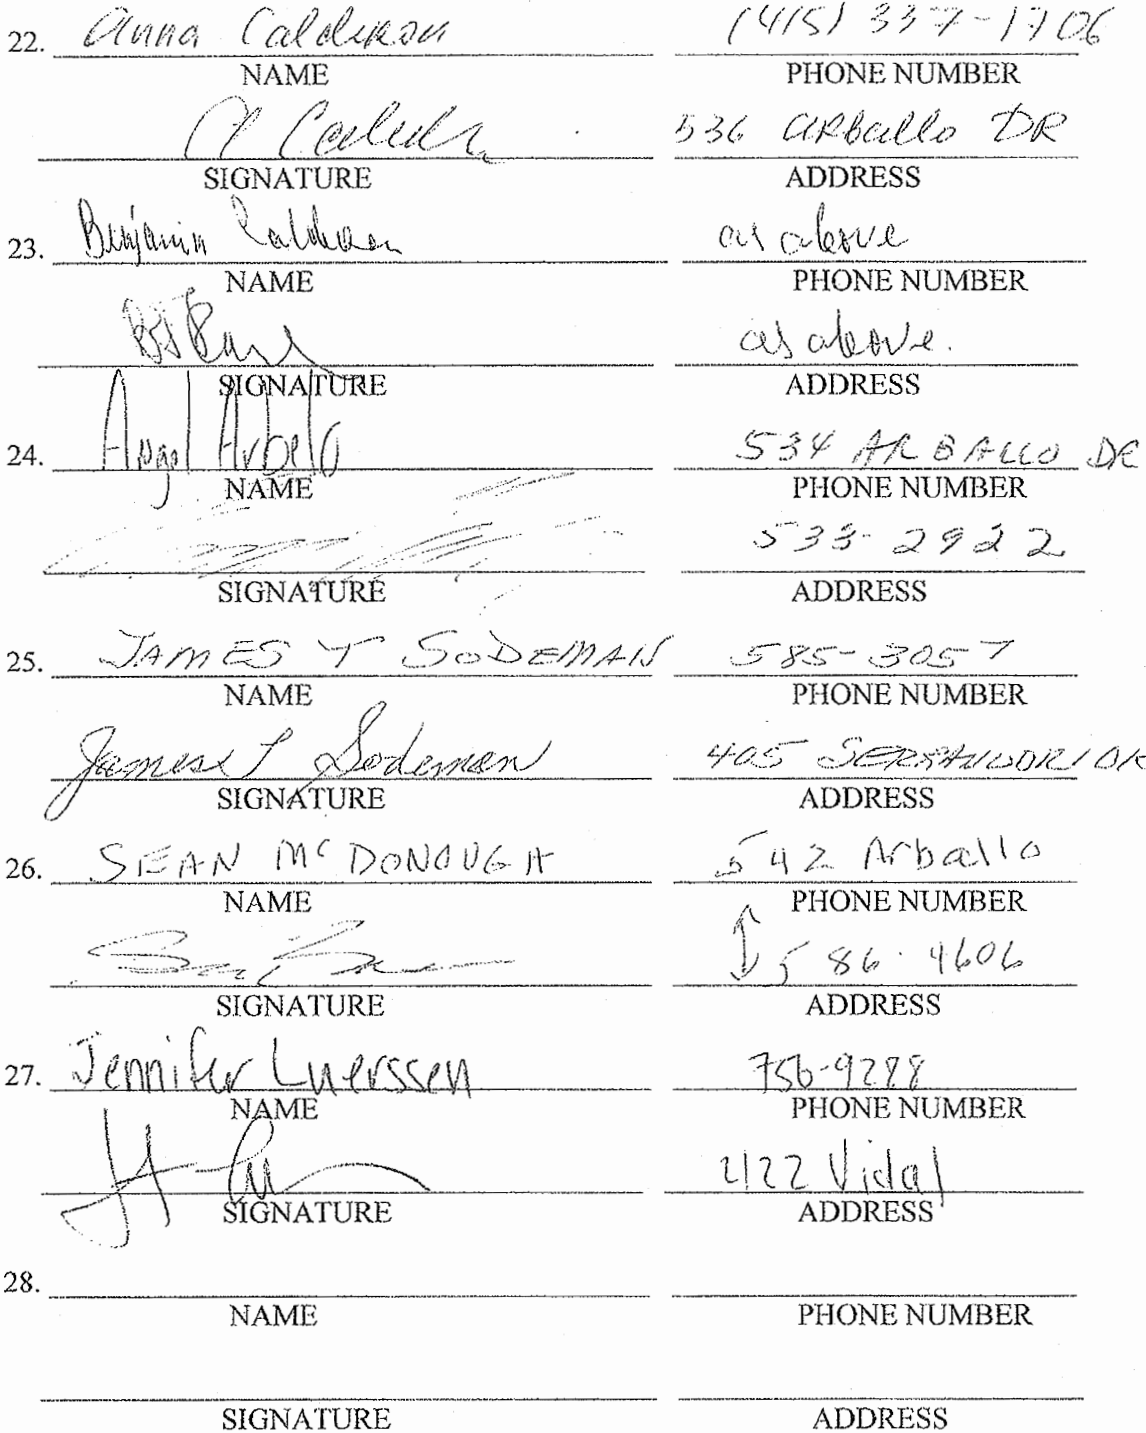 22. Anna Calderon (415) 337-1706
NAME PHONE NUMBER
536 Arballo DR
SIGNATURE ADDRESS
23. Benjamin Calderon as above
NAME PHONE NUMBER
as above.
SIGNATURE ADDRESS
24. Angel Arbelo 534 ARBALLO DR
NAME PHONE NUMBER
533-2922
SIGNATURE ADDRESS
25. JAMES T SODEMAN 585-3057
NAME PHONE NUMBER
James T Sodeman 405
SIGNATURE ADDRESS
26. SEAN McDONOUGH 542 Arballo
NAME PHONE NUMBER
586-4606
SIGNATURE ADDRESS
27. Jennifer Luerssen 756-9288
NAME PHONE NUMBER
Vidal
SIGNATURE ADDRESS
28.
NAME PHONE NUMBER
SIGNATURE ADDRESS